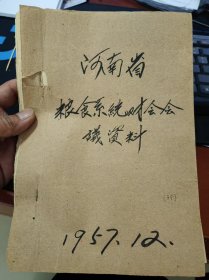 河南省
粮食系统财会会
议资料
1957.12.